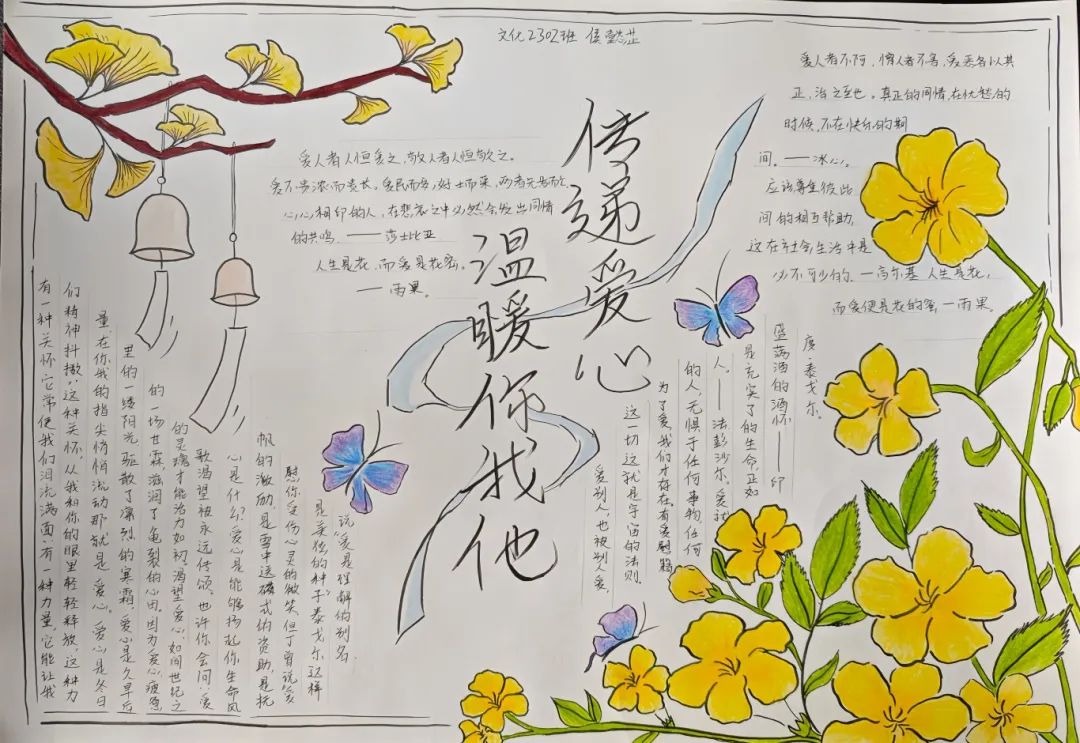 文化2302班 侯懿芷
传递爱心
温暖你我他
爱人者人恒爱之,敬人者人恒敬之。
爱不贵浓而贵长。爱民而安,好士而荣,两者无一焉而亡
心心相印的人,在悲哀之中必然会发出同情
的共鸣。——莎士比亚
人生是花,而爱是花蜜。
——雨果。
爱人者不阿,憎人者不害,爱恶各以其
正,治之至也。真正的同情,在忧愁的
时候,不在快乐的期
间。——冰心。
应该尊重彼此
间的相互帮助,
这在社会生活中是
必不可少的。—高尔基 人生是花,
而爱便是花的蜜—雨果。
有一种关怀它常使我们泪流满面:有一种力量它能让我
们精神抖擞:这种关怀,从我和你的眼里轻轻释放,这种力
量,在你我的指尖悄悄流动那就是爱心。爱心是冬日
里的一缕阳光,驱散了凛冽的寒霜.爱心是久旱后
的一场甘霖,滋润了龟裂的心田,因为爱心,疲惫
的灵魂才能治力如初,渴望爱心,如同世纪之
歌渴望被永远传颂。也许你会问:爱
心是什么?爱心是能够扬起你生命风
帆的激励,是雪中送碳式的资助,是抚
慰你受伤心灵的微笑但丁曾说"爱
是美德的种子"泰戈尔这样
说"爱是理解的别名
爱别人,也被别人爱,
这一切,这就是宇宙的法则.
为了爱,我们才存在.有爱慰籍
的人,无惧于任何事物,任何
人,——法彭沙尔.爱就
是充实了的生命,正如
盛满酒的酒怀——印
度·泰戈尔.